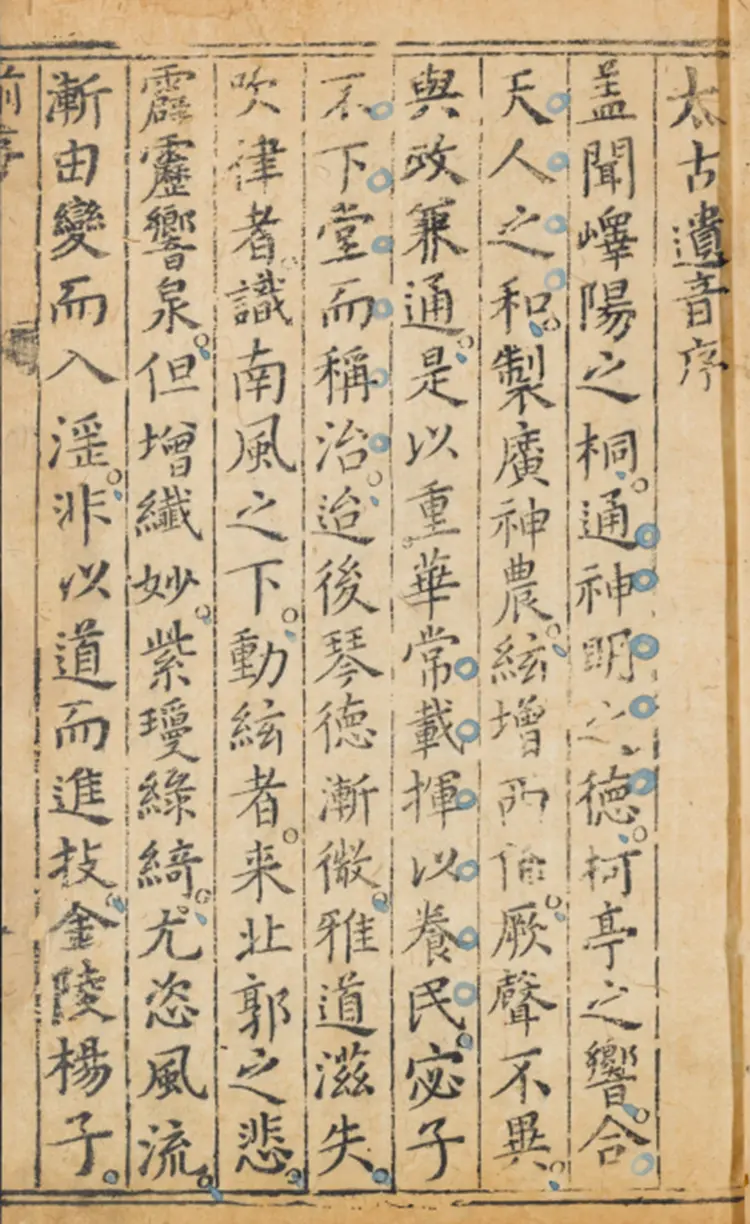 太古遺音序
盖聞嶧陽之桐通神明之德柯亭之響合
天人之和製廣神農絃增西伯厥聲不異
與政兼通是以重華常載揮以養民宓子
不下堂而稱治迨後琴德漸微雅道滋失
吹律者識南風之下動絃者来北郭之悲
霹靂響泉但增纖妙紫瓊綠綺尤恣風流
漸由變而入淫非以道而進技金陵楊子